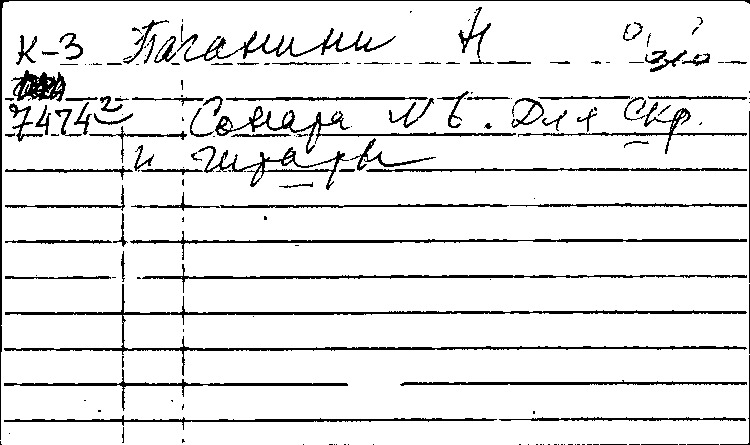 К-3 Паганини Н
7474² Соната N 6. Для скр.
и гитары